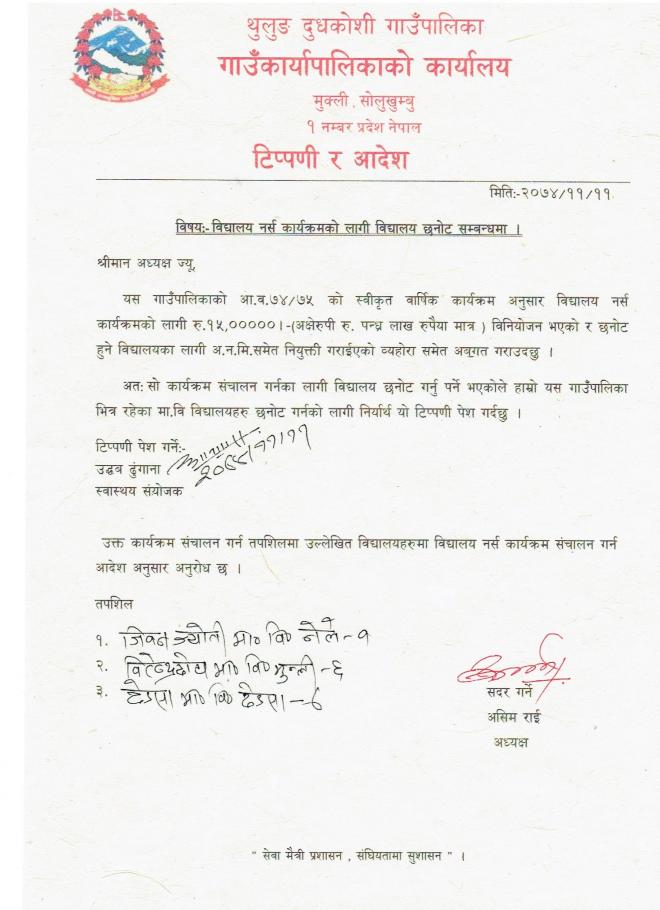 थुलुङ दुधकोशी गाउँपालिका
गाउँकार्यापालिकाको कार्यालय
मुक्ली, सोलुखुम्बु
१ नम्बर प्रदेश नेपाल
टिप्पणी र आदेश
मिति:-२०७४/११/११
विषय:- विद्यालय नर्स कार्यक्रमको लागी विद्यालय छनोट सम्बन्धमा ।
श्रीमान अध्यक्ष ज्यू,
यस गाउँपालिकाको आ.व.७४/७५ को स्वीकृत वार्षिक कार्यक्रम अनुसार विद्यालय नर्स
कार्यक्रमको लागी रु.१५,०००००।-(अक्षेरुपी रु. पन्ध्र लाख रुपैया मात्र ) विनियोजन भएको र छनोट
हुने विद्यालयका लागी अ.न.मि.समेत नियुक्ती गराईएको व्यहोरा समेत अवगत गराउदछु ।
अत: सो कार्यक्रम संचालन गर्नका लागी विद्यालय छनोट गर्नु पर्ने भएकोले हाम्रो यस गाउँपालिका
भित्र रहेका मा.वि विद्यालयहरु छनोट गर्नको लागी निर्यार्थ यो टिप्पणी पेश गर्दछु ।
टिप्पणी पेश गर्ने:-
उद्धव ढुंगाना
स्वास्थय संयोजक
उक्त कार्यक्रम संचालन गर्न तपशिलमा उल्लेखित विद्यालयहरुमा विद्यालय नर्स कार्यक्रम संचालन गर्न
आदेश अनुसार अनुरोध छ ।
तपशिल
१. जिवन ज्योती मा० वि० नेले-१
२. मा० वि० मुक्ली-६
३. मा० वि०
सदर गर्ने
असिम राई
अध्यक्ष
" सेवा मैत्री प्रशासन , संघियतामा सुशासन " ।